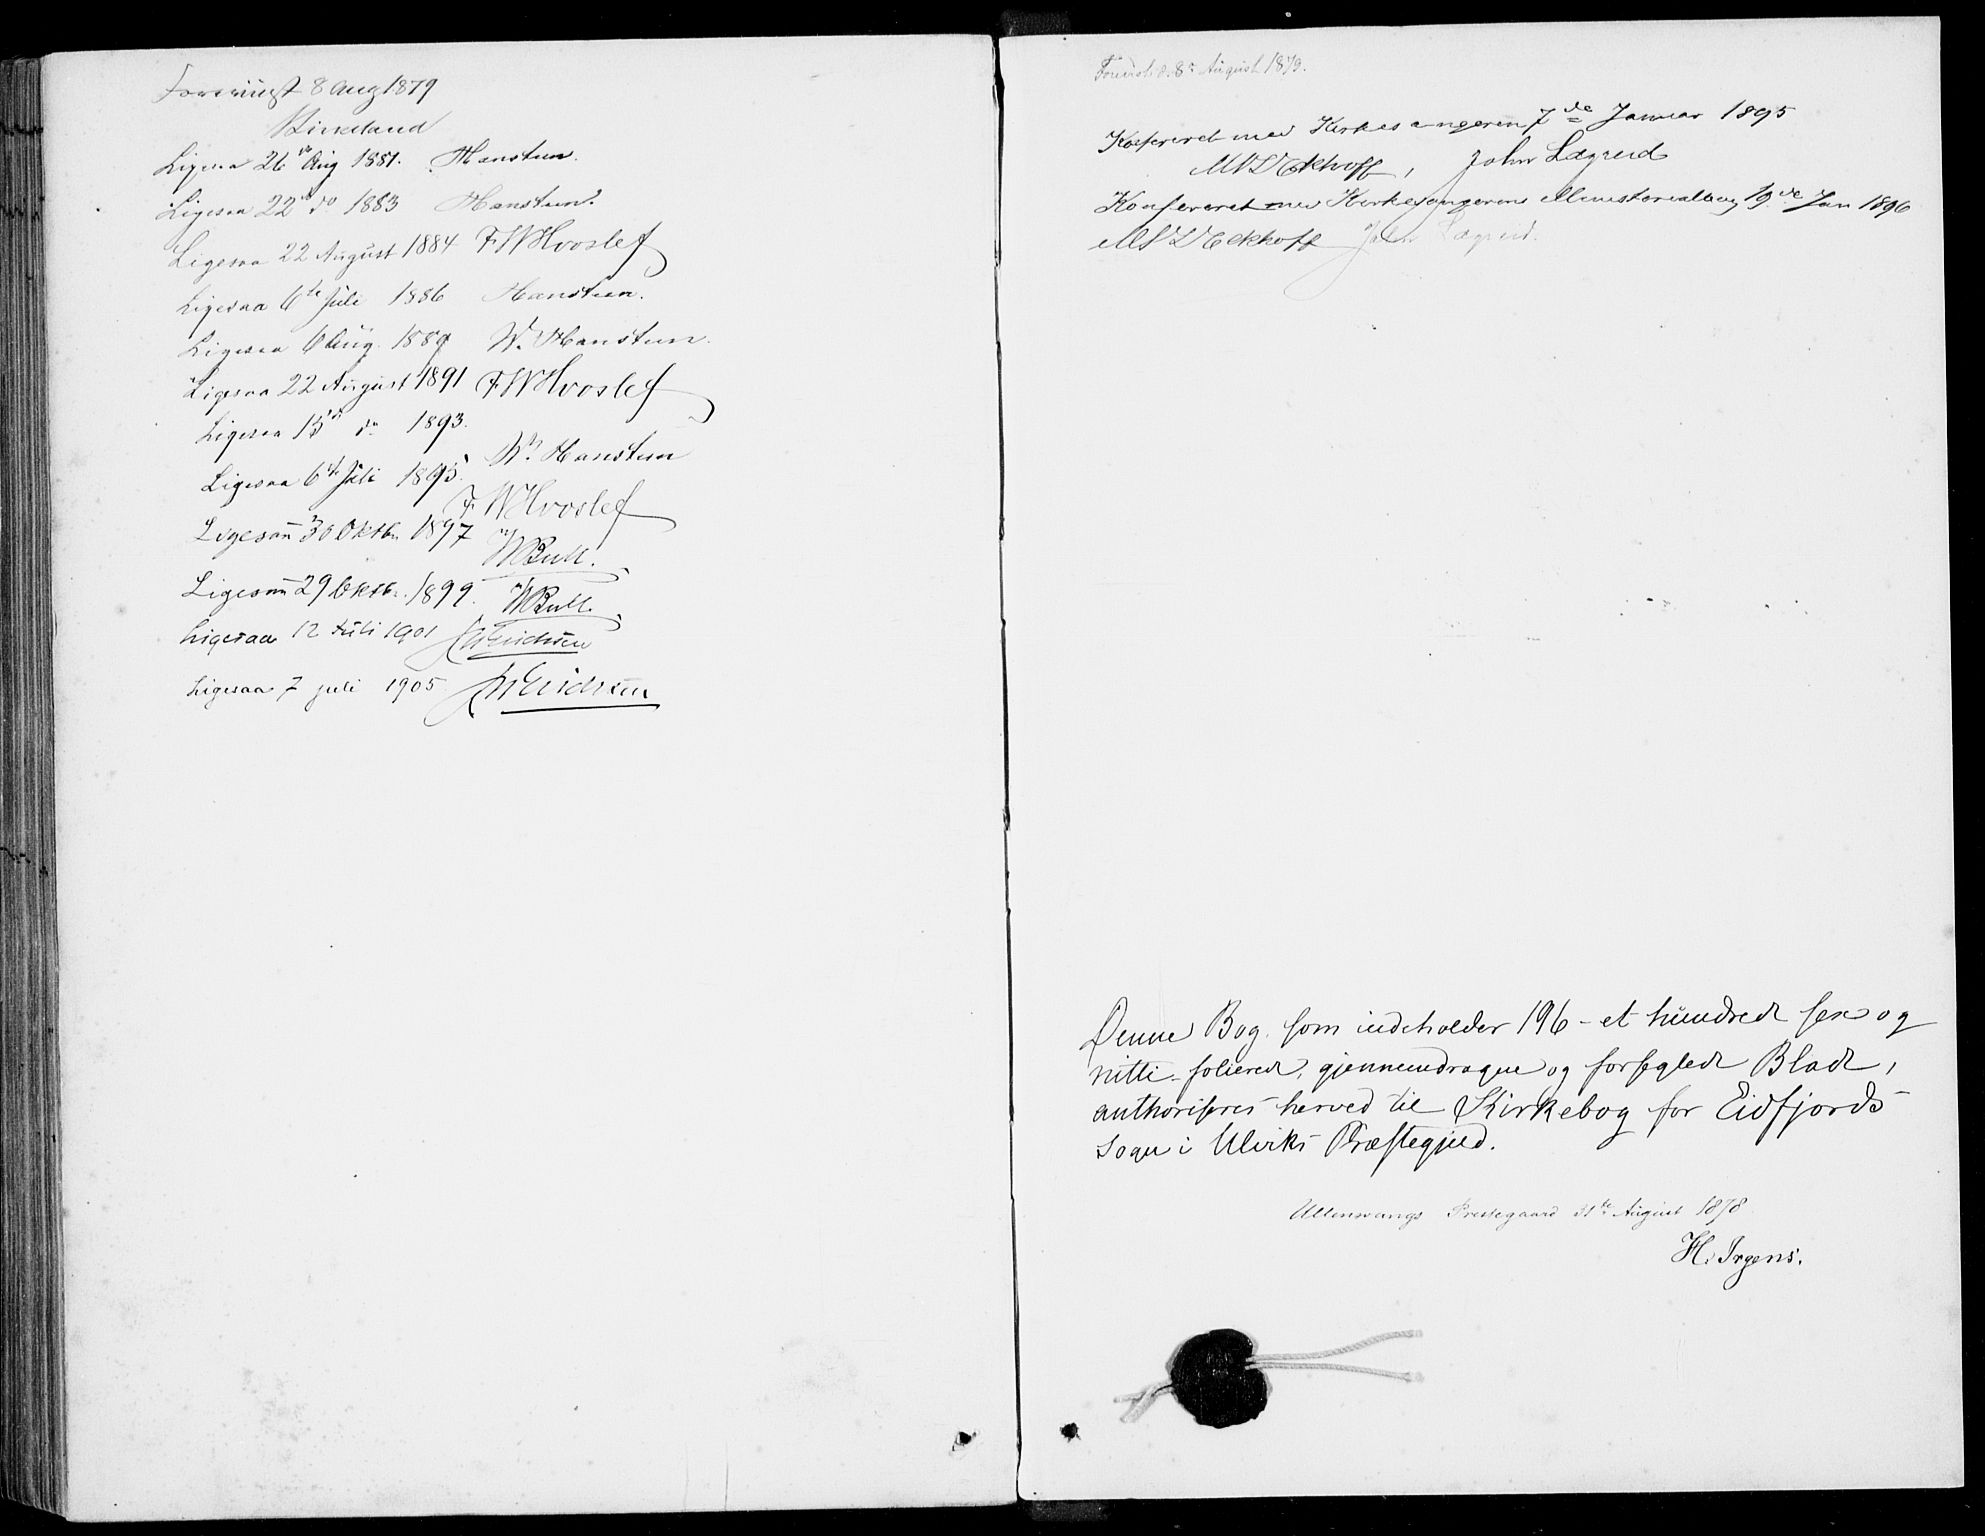 Forevist 8 Aug 1879
Ligesaa 26de Aug 1881. Hansteen.
Ligesaa 22de do 1883 Hansteen.
Ligesaa 22 August 1884 FWHvoslef
Ligesaa 6te Juli 1886 Hansteen.
Ligesaa 6 Aug. 1889 W. Hansteen.
Ligesaa 22 August 1891 FWHvoslef
Ligesaa do 1893.
W. Hansteen
Ligesaa 6te Juli 1895.
FWHvoslef
Ligesaa 30 Oktbr 1897
WBull.
Ligesaa 29 Oktbr. 1899. WBull.
Ligesaa 12 Juli 1901
Ligesaa 7 juli 1905
Forevist d. 8de August 1879.
Konfereret med Kirkesangeren 7de Januar 1895
Eckhoff, John Lægreid
Konfereret med Kirkesangerens Ministerialbog 19de Jan 1896
Eckhoff John Lægreid.
Denne Bog, som indeholder 196 - et hundrede sex og
nitti - folierede, gjennemdragne og forseglede Blade,
authoriseres herved til Kirkebog for Eidfjords
Sogn i Ulviks Præstegjeld.
Ullensvangs Prestegaard 31te August 1878
H. Irgens.